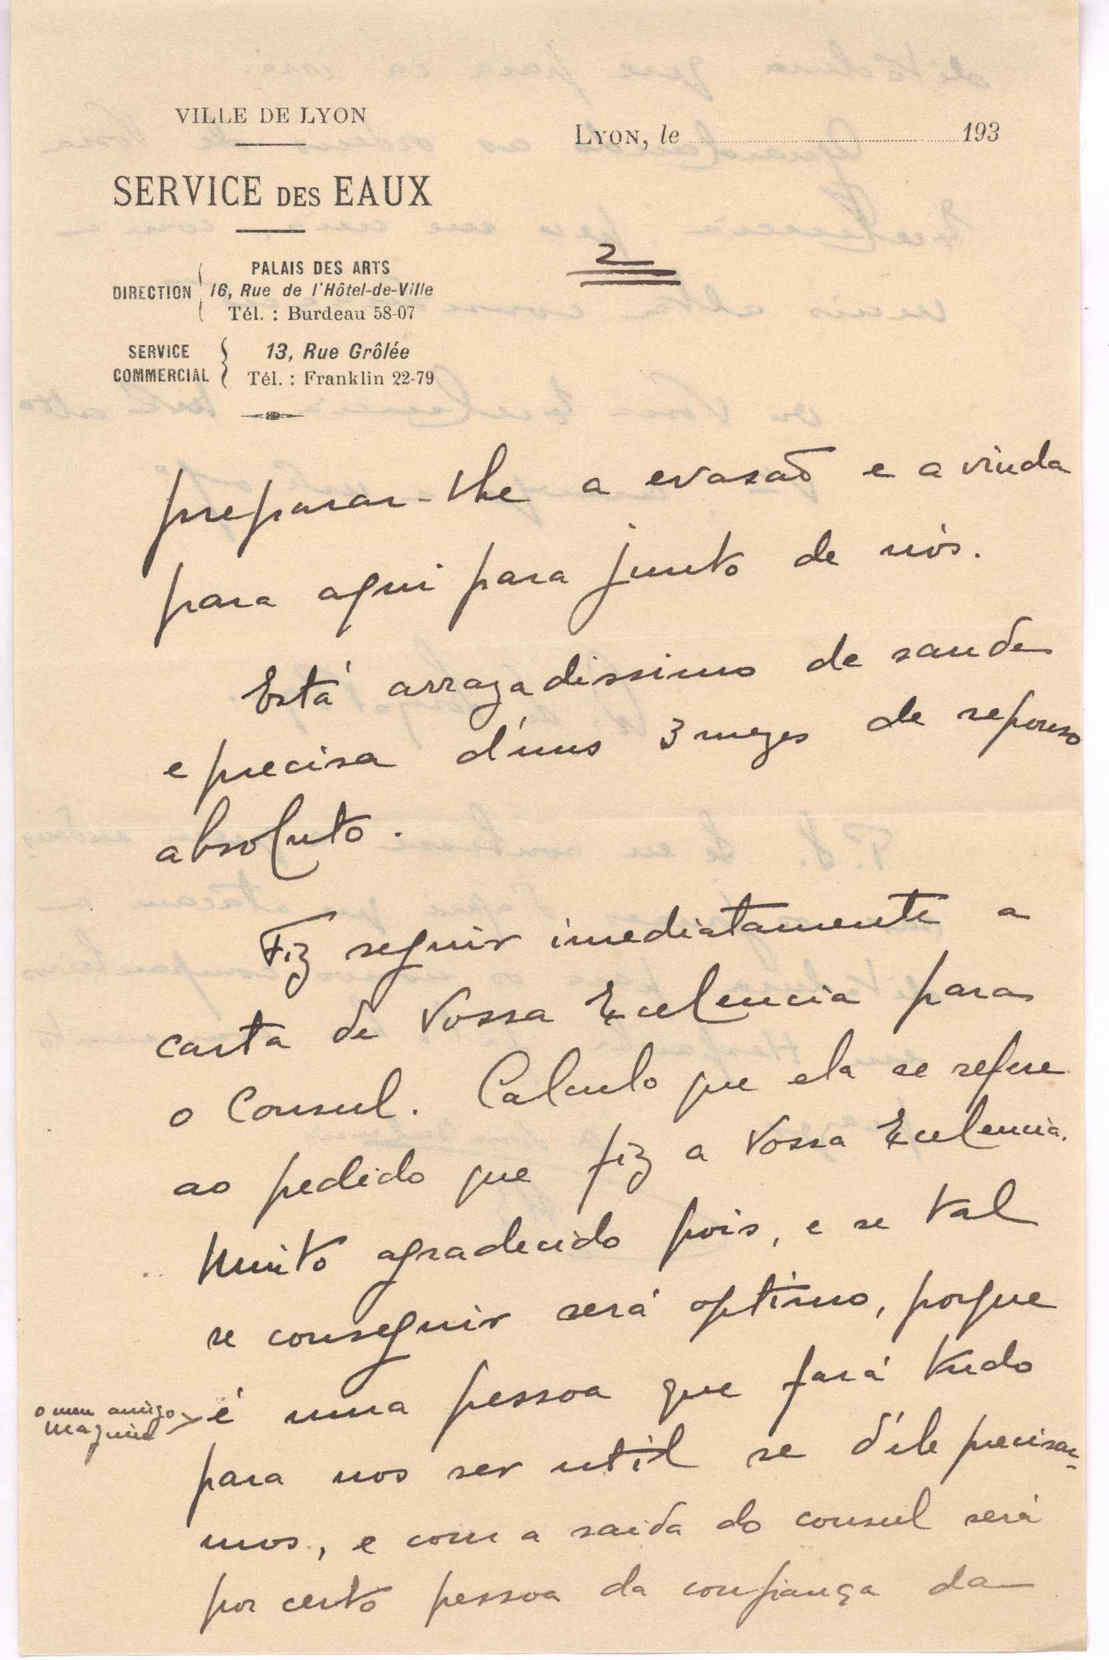 VILLE DE LYON
LYON, le 193
SERVICE DES EAUX
2
DIRECTION
PALAIS DES ARTS
16, Rue de l'Hôtel-de-Ville
Tél. : Burdeau 58-07
SERVICE COMMERCIAL
13, Rue Grôlée
Tél. : Franklin 22-79
preparar-lhe a evasão e a vinda
para aqui para junto de nós.
Está arrazadissimo de saude
e precisa d'uns 3 mezes de repouso
absoluto.
Fiz seguir imediatamente a
carta de Vossa Excelencia para
o Consul. Calculo que ela se refere
ao pedido que fiz a Vossa Excelencia.
Muito agradecido pois, e se tal
se conseguir será optimo, porque
o meu amigo
é uma pessoa que fará tudo
para nos ser util se d'ele precisar-
mos, e com a saida do consul será
por certo pessoa da confiança da